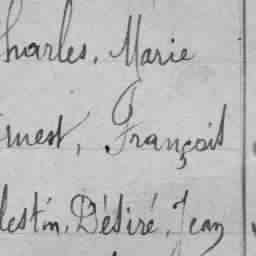 Charles, Marie
Ernest, François
Célestin, Désiré, Jean